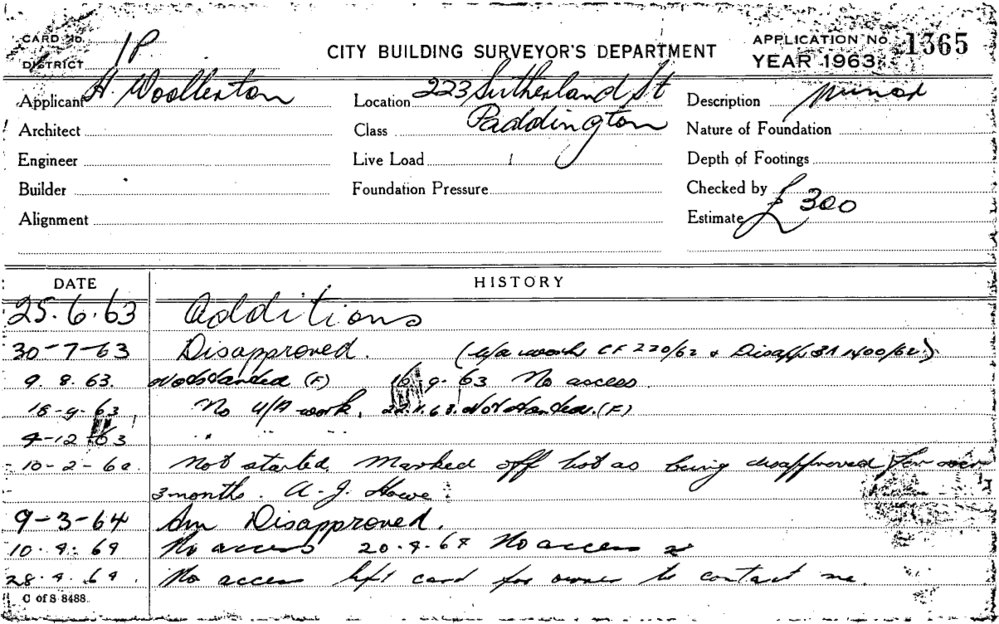 CARD No.
DISTRICT 1P
CITY BUILDING SURVEYOR'S DEPARTMENT
APPLICATION No. 1365
YEAR 1963
Applicant H Woollerton
Location 223 Sutherland St
Paddington
Description minor
Architect
Class
Nature of Foundation
Engineer
Live Load
Depth of Footings
Builder
Foundation Pressure
Checked by
Alignment
Estimate £ 300
DATE HISTORY
25.6.63 Additions
30-7-63 Disapproved. (u/a works CF 220/62 & Disapp 1400/62)
9.8.63. Not Started (F) 16.9.63 No access.
18-9-63 No U/A work. Not Started. (F)
4-12-63 " "
10-2-64. Not started. Marked off list as being disapproved for over
3 months. A. J. Howe
9-3-64 Am Disapproved.
10.4.64 No access 20.4.64 No access
28.4.64. No access left card for owner to contact me.
C of S 8488